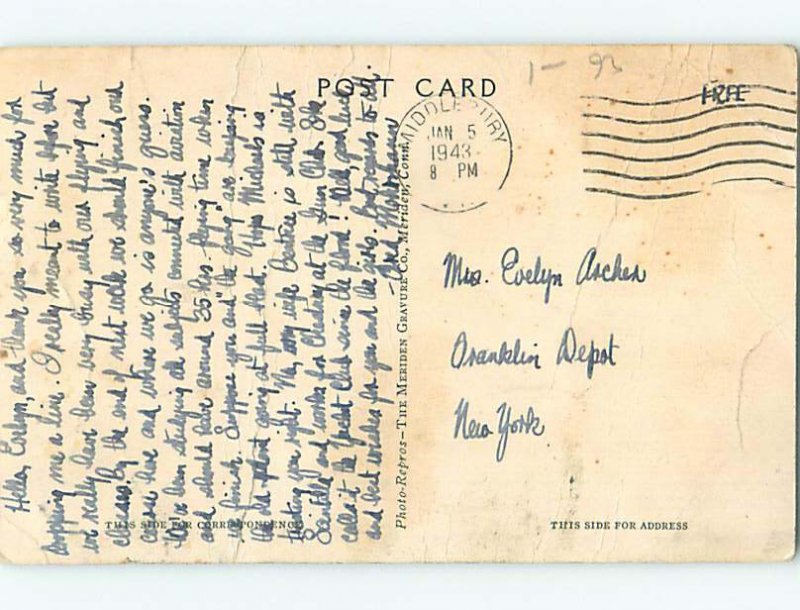 POST CARD
1- 93
FREE
MIDDLEBURY
JAN 5
1943
8 PM
Mrs. Evelyn Archer
Franklin Depot
New York
THIS SIDE FOR CORRESPONDENCE
THIS SIDE FOR ADDRESS
Photo-Repros—THE MERIDEN GRAVURE CO., Meriden, Conn.
Hello, Evelyn, and thank you so very much for
dropping me a line. I really meant to write after but
we really have been very busy with our flying and
classes. By the end of next week we should finish our
course here and where we go is anyone's guess.
We've been studying all subjects connected with aviation
and should have around 35 hrs. flying time when
we finish. Suppose you and "the gang" are keeping
the old plant going at full blast. Hope Michaels is
treating you right. No, my wife Beatrice is still with
Scintilla and works for Cheating at the Gun Club. She
calls it the Yacht Club since the flood! Well, good luck
and best wishes for you and the girls. Best regards to all.